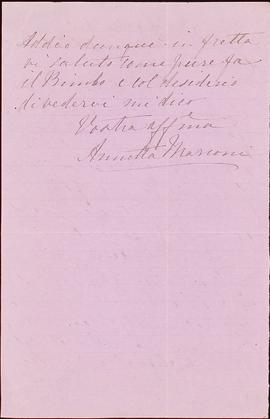 Addio dunque in fretta
vi saluto come pure fa
il Bimbo e col desiderio
di vedervi mi dico
Vostra affma
Annetta Marconi